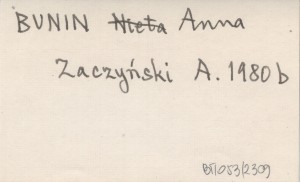 BUNIN Nieta Anna
Zaczyński A. 1980b
BŁ/053/2309